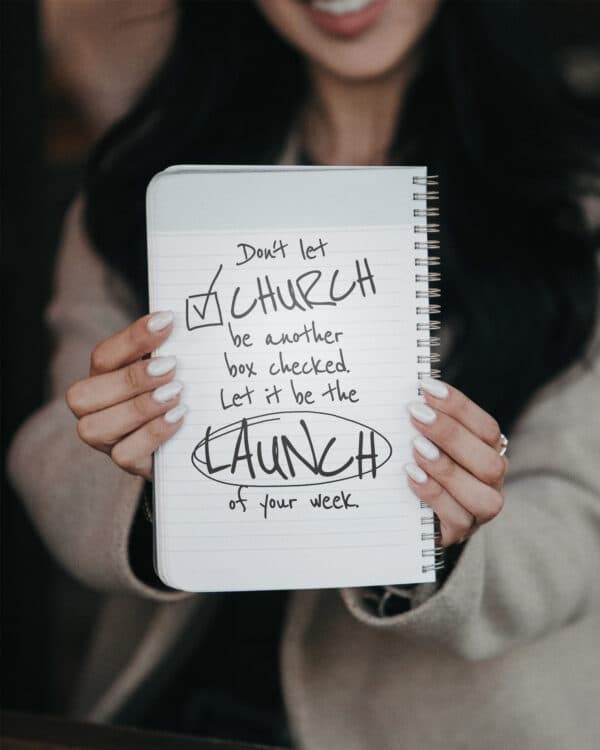 Don't let
CHURCH
be another
box checked.
Let it be the
LAUNCH
of your week.